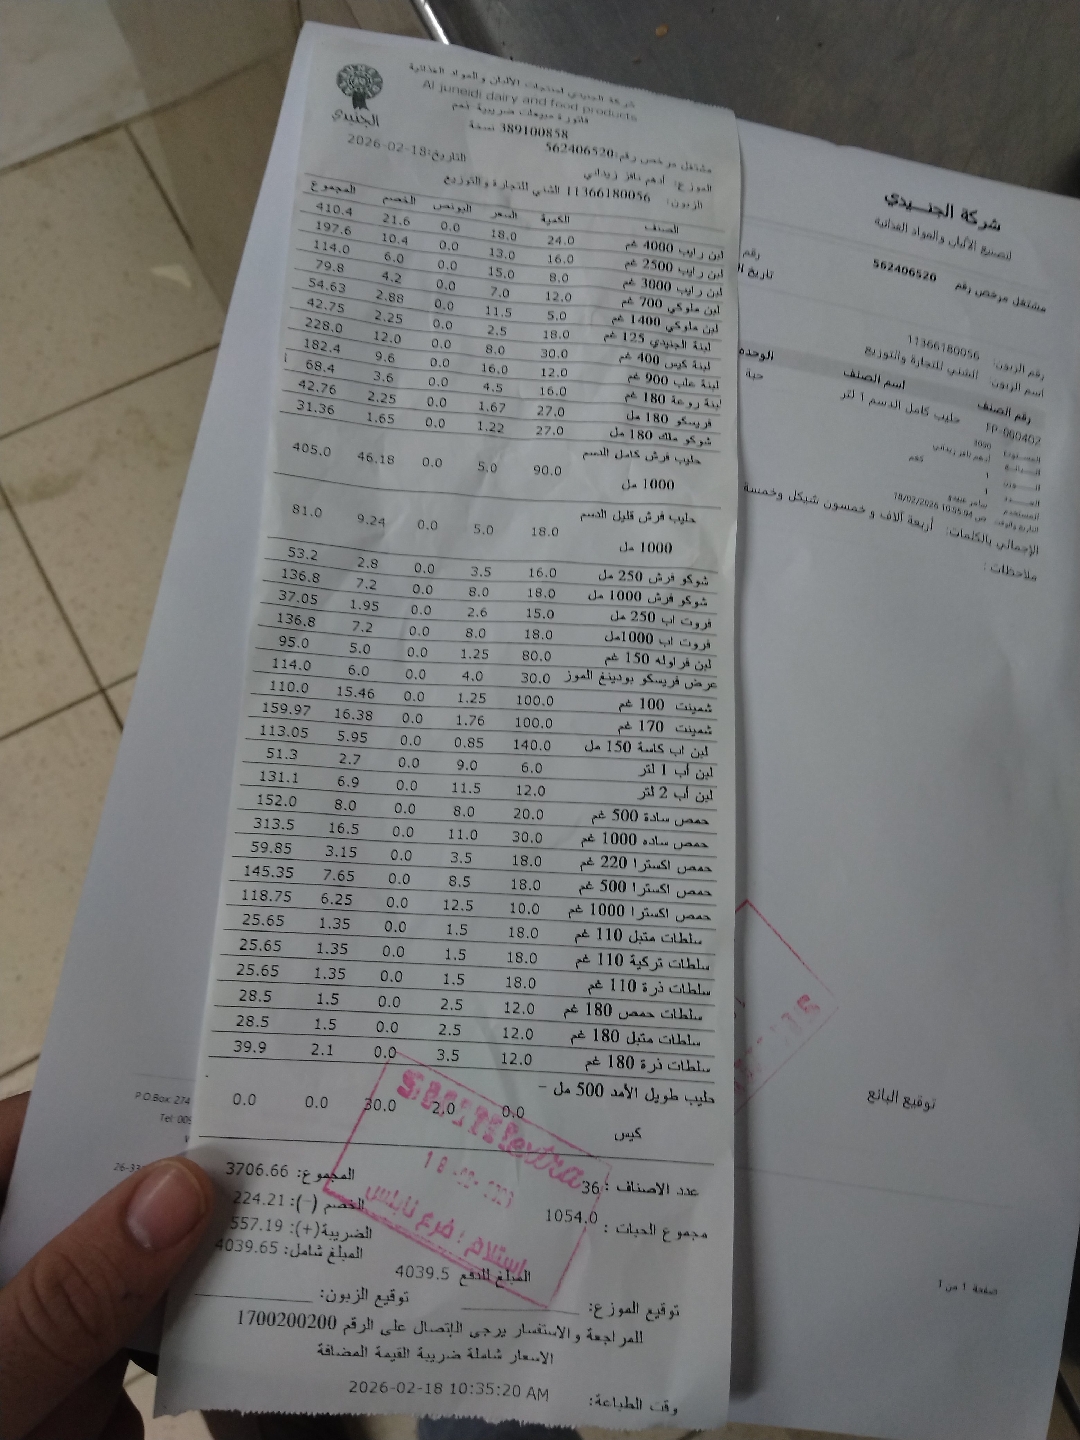 شركة الجنيدي لمنتجات الألبان والمواد الغذائية
Al juneidi dairy and food products
فاتورة مبيعات ضريبية رقم
389100858 نسخة
الجنيدي
مشتغل مرخص رقم:562406520
التاريخ:2026-02-18
الموزع: أدهم نافز زيداني
الزبون: 11366180056 الشني للتجارة والتوزيع
الصنف الكمية السعر البونص الخصم المجموع
لبن رايب 4000 غم 24.0 18.0 0.0 21.6 410.4
لبن رايب 2500 غم 16.0 13.0 0.0 10.4 197.6
لبن رايب 3000 غم 8.0 15.0 0.0 6.0 114.0
لبن ملوكي 700 غم 12.0 7.0 0.0 4.2 79.8
لبن ملوكي 1400 غم 5.0 11.5 0.0 2.88 54.63
لبنة الجنيدي 125 غم 18.0 2.5 0.0 2.25 42.75
لبنة كيس 400 غم 30.0 8.0 0.0 12.0 228.0
لبنة علب 900 غم 12.0 16.0 0.0 9.6 182.4
لبنة روعة 180 غم 16.0 4.5 0.0 3.6 68.4
فريسكو 180 مل 27.0 1.67 0.0 2.25 42.76
شوكو ملك 180 مل 27.0 1.22 0.0 1.65 31.36
حليب فرش كامل الدسم
1000 مل 90.0 5.0 0.0 46.18 405.0
حليب فرش قليل الدسم
1000 مل 18.0 5.0 0.0 9.24 81.0
شوكو فرش 250 مل 16.0 3.5 0.0 2.8 53.2
شوكو فرش 1000 مل 18.0 8.0 0.0 7.2 136.8
فروت اب 250 مل 15.0 2.6 0.0 1.95 37.05
فروت اب 1000مل 18.0 8.0 0.0 7.2 136.8
لبن فراوله 150 غم 80.0 1.25 0.0 5.0 95.0
عرض فريسكو بودينغ الموز 30.0 4.0 0.0 6.0 114.0
شمينت 100 غم 100.0 1.25 0.0 15.46 110.0
شمينت 170 غم 100.0 1.76 0.0 16.38 159.97
لبن اب كاسة 150 مل 140.0 0.85 0.0 5.95 113.05
لبن أب 1 لتر 6.0 9.0 0.0 2.7 51.3
لبن أب 2 لتر 12.0 11.5 0.0 6.9 131.1
حمص سادة 500 غم 20.0 8.0 0.0 8.0 152.0
حمص ساده 1000 غم 30.0 11.0 0.0 16.5 313.5
حمص اكسترا 220 غم 18.0 3.5 0.0 3.15 59.85
حمص اكسترا 500 غم 18.0 8.5 0.0 7.65 145.35
حمص اكسترا 1000 غم 10.0 12.5 0.0 6.25 118.75
سلطات متبل 110 غم 18.0 1.5 0.0 1.35 25.65
سلطات تركية 110 غم 18.0 1.5 0.0 1.35 25.65
سلطات ذرة 110 غم 18.0 1.5 0.0 1.35 25.65
سلطات حمص 180 غم 12.0 2.5 0.0 1.5 28.5
سلطات متبل 180 غم 12.0 2.5 0.0 1.5 28.5
سلطات ذرة 180 غم 12.0 3.5 0.0 2.1 39.9
حليب طويل الأمد 500 مل -
كيس 0.0 2.0 30.0 0.0 0.0
عدد الاصناف : 36
مجموع الحبات : 1054.0
المجموع: 3706.66
الخصم (-): 224.21
الضريبة(+): 557.19
المبلغ شامل: 4039.65
المبلغ للدفع 4039.5
extra
استلام : فرع نابلس
توقيع الموزع: توقيع الزبون:
للمراجعة والاستفسار يرجى الاتصال على الرقم 1700200200
الاسعار شاملة ضريبة القيمة المضافة
وقت الطباعة: 2026-02-18 10:35:20 AM
شركة الجنيدي
لتصنيع الألبان والمواد الغذائية
مشتغل مرخص رقم 562406520
رقم
تاريخ
رقم الزبون: 11366180056
اسم الزبون: الشني للتجارة والتوزيع
رقم الصنف اسم الصنف الوحده
FP-060402 حليب كامل الدسم 1 لتر حبة
18/02/2026 10:55:04
الإجمالي بالكلمات: أربعة آلاف و خمسون شيكل وخمسة
ملاحظات :
توقيع البائع
صفحة 1 من 1
P.O.Box: 274
Tel: 009